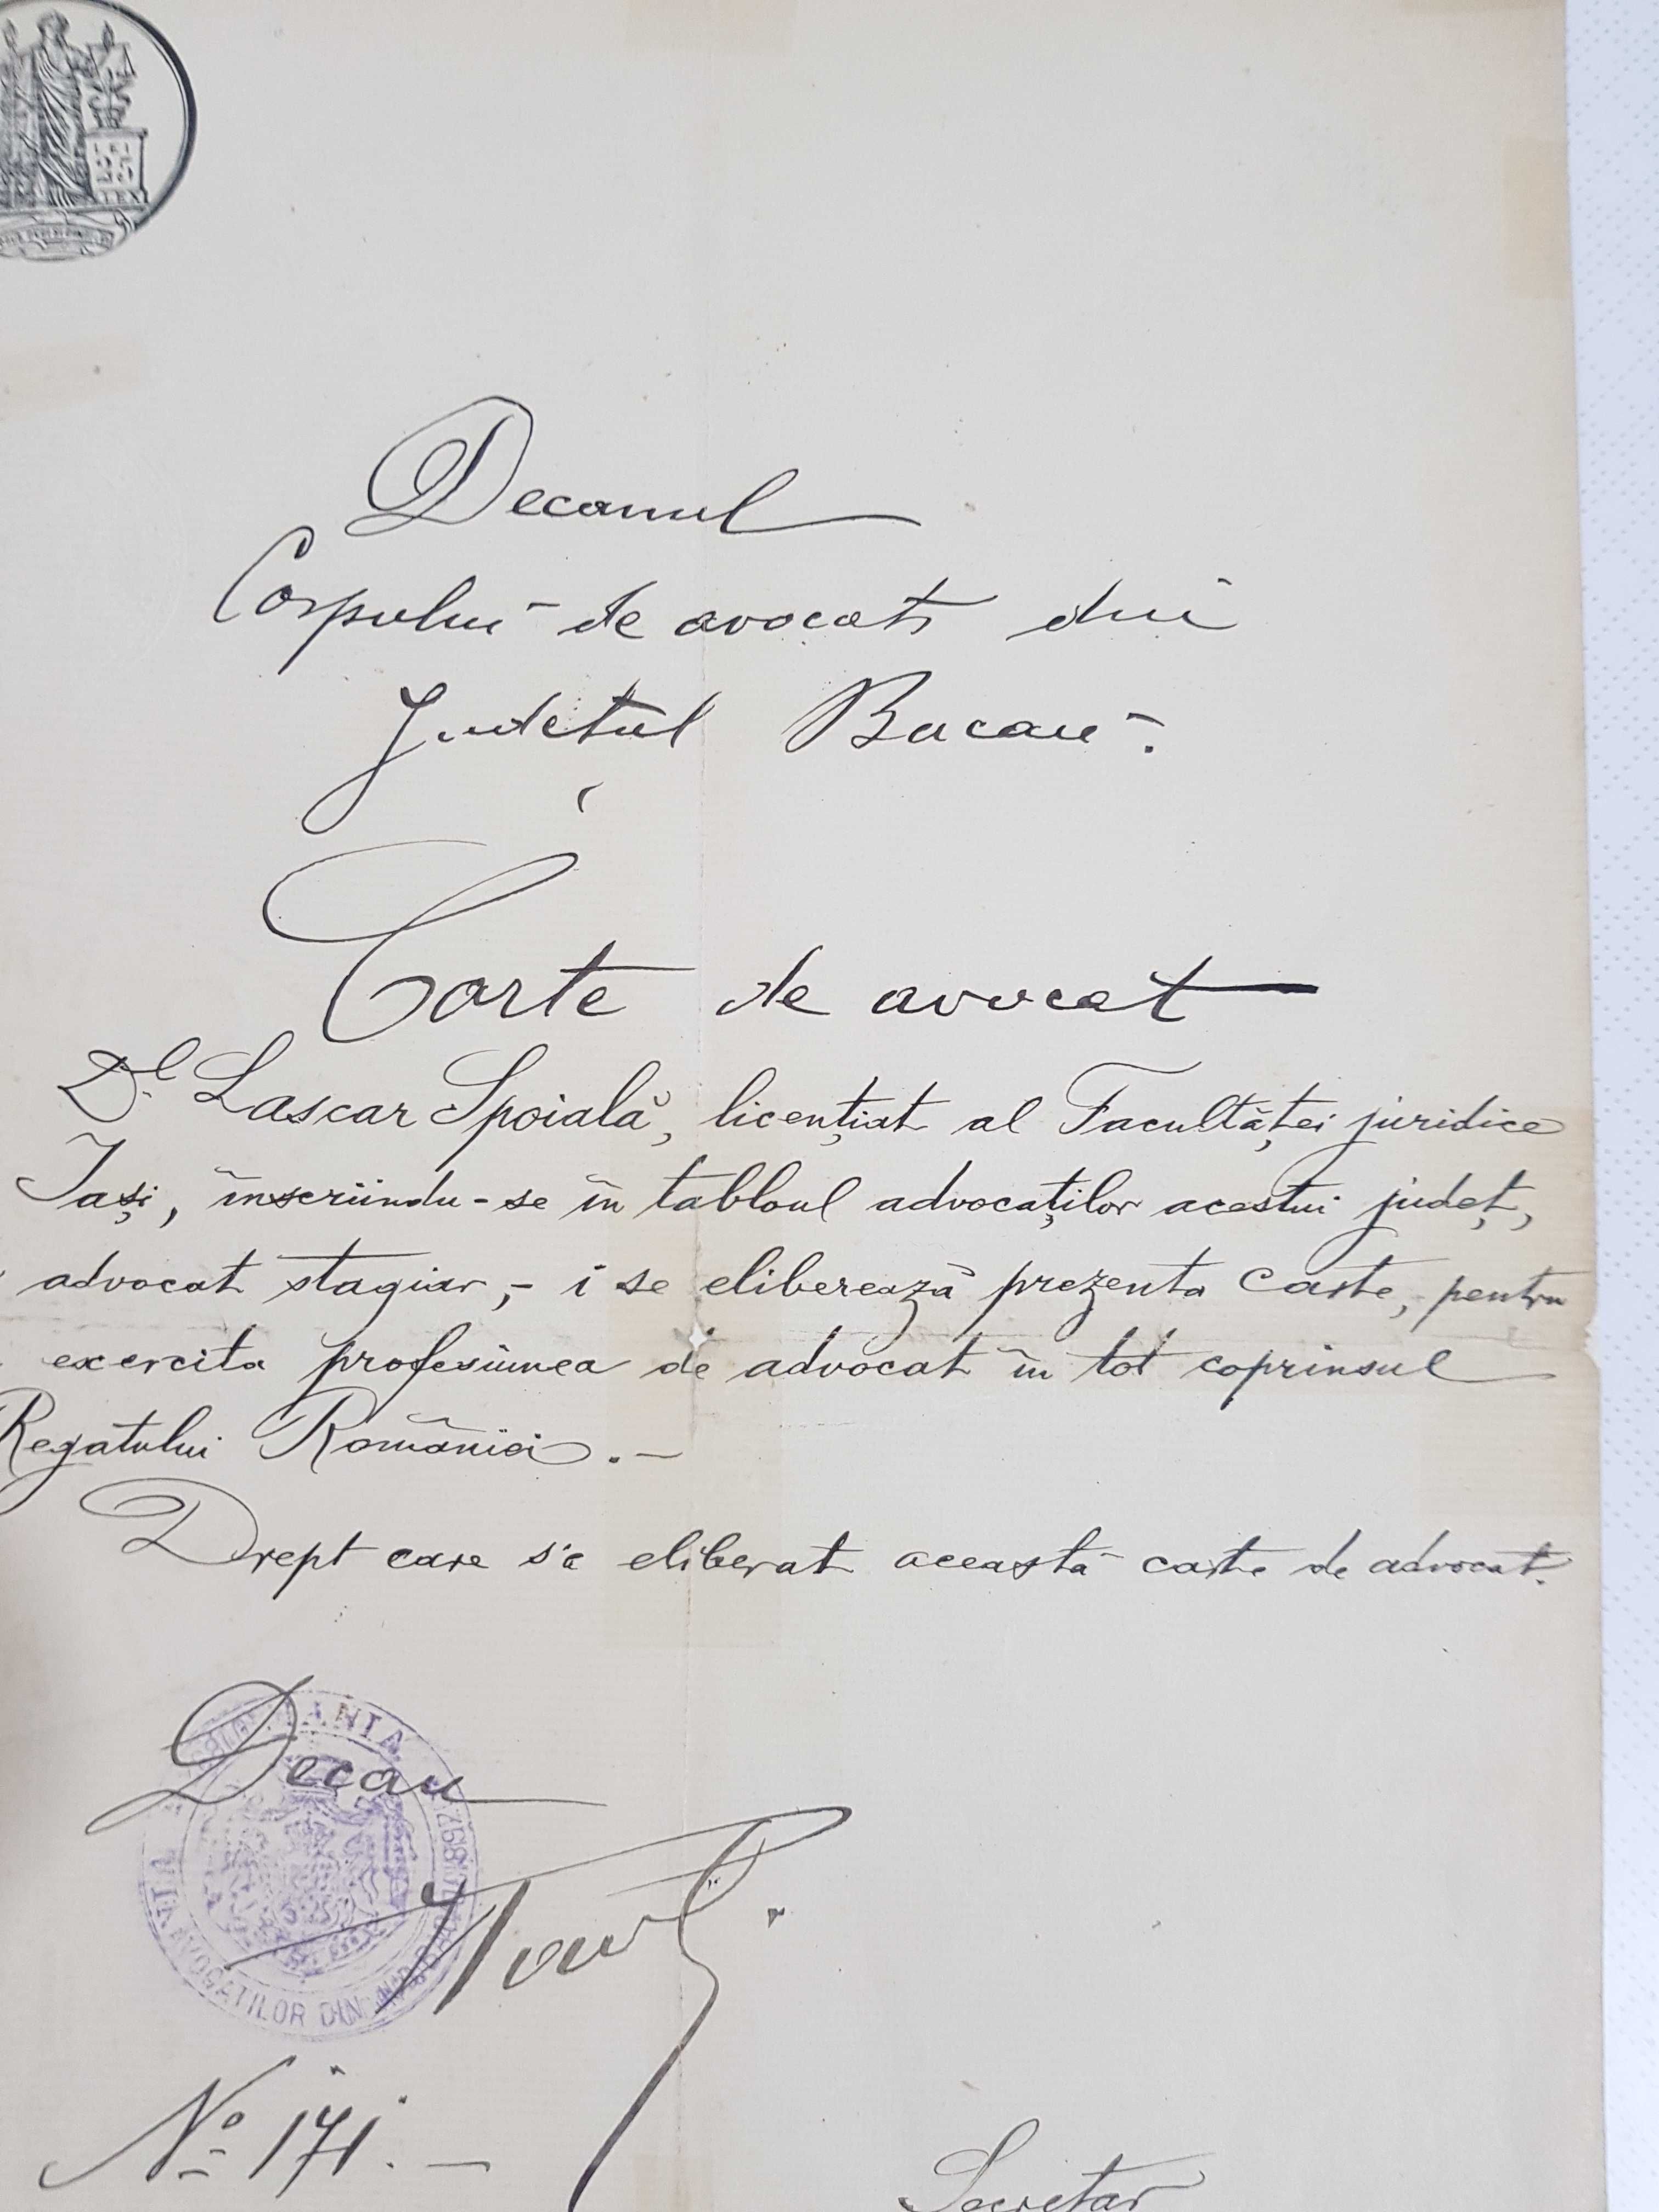 LEX
Decanul
Corpului de avocați din
Județul Bacău.
Carte de avocat
Dl. Lascar Spoială, licențiat al Facultăței juridice
Iași, înscriindu-se în tabloul advocaților acestui județ,
advocat stagiar,- i se eliberează prezenta carte, pentru
exercita profesiunea de advocat în tot coprinsul
Regatului României.-
Drept care s'a eliberat această carte de advocat.
Decan
AVOCAȚILOR DIN
No 171.-
Secretar